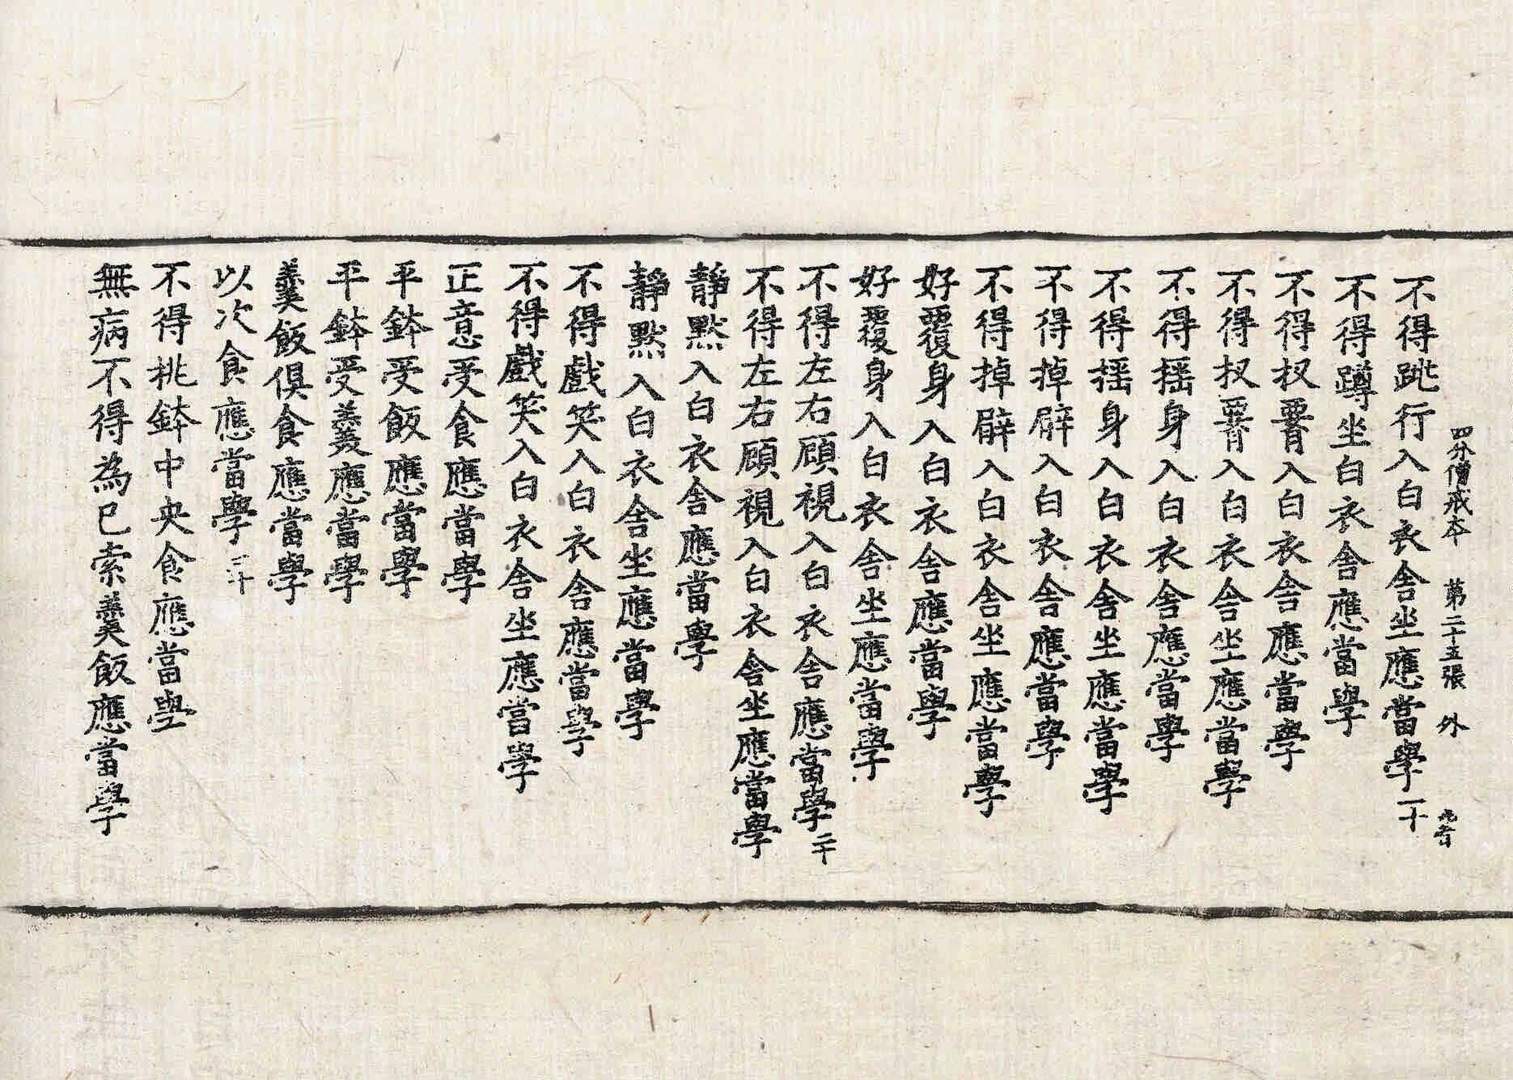 四分僧戒本 第二十五張 外
不得跳行入白衣舍坐應當學一十
不得蹲坐白衣舍應當學
不得扠䯗入白衣舍應當學
不得扠䯗入白衣舍坐應當學
不得搖身入白衣舍應當學
不得搖身入白衣舍坐應當學
不得掉臂入白衣舍應當學
不得掉臂入白衣舍坐應當學
好覆身入白衣舍應當學
好覆身入白衣舍坐應當學
不得左右顧視入白衣舍應當學二十
不得左右顧視入白衣舍坐應當學
靜黙入白衣舍應當學
靜黙入白衣舍坐應當學
不得戲笑入白衣舍應當學
不得戲笑入白衣舍坐應當學
正意受食應當學
平鉢受飯應當學
平鉢受羹應當學
羹飯俱食應當學
以次食應當學三十
不得挑鉢中央食應當學
無病不得為已索羹飯應當學